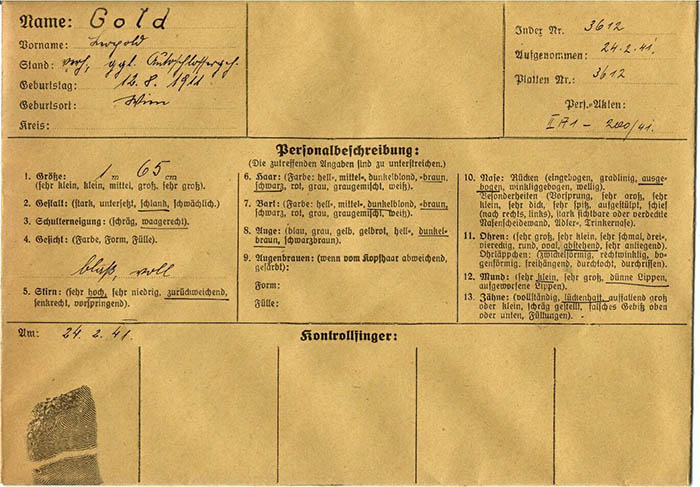 Name: Gold
Vorname: Leopold
Stand: verh, ggl. Autoschlossergeh.
Geburtstag: 12. 8. 1911
Geburtsort: Wien
Kreis:
Index Nr. 3612
Aufgenommen: 24.2.41.
Platten Nr.: 3612
Pers.-Akten:
II A1 - 200/41.
Personalbeschreibung:
(Die zutreffenden Angaben sind zu unterstreichen.)
1. Größe: 1 m 65 cm
(sehr klein, klein, mittel, groß, sehr groß).
2. Gestalt: (stark, untersetzt, schlank, schwächlich).
3. Schulterneigung: (schräg, waagerecht).
4. Gesicht: (Farbe, Form, Fülle).
blaß, voll
5. Stirn: (sehr hoch, sehr niedrig, zurückweichend,
senkrecht, vorspringend).
6. Haar: (Farbe: hell-, mittel-, dunkelblond, -braun,
schwarz, rot, grau, graugemischt, weiß).
7. Bart: (Farbe: hell-, mittel-, dunkelblond, -braun,
schwarz, rot, grau, graugemischt, weiß).
8. Auge: (blau, grau, gelb, gelbrot, hell-, dunkel-
braun, schwarzbraun).
9. Augenbrauen: (wenn vom Kopfhaar abweichend,
gefärbt):
Form:
Fülle:
10. Nase: Rücken (eingebogen, gradlinig, ausge-
bogen, winkliggebogen, wellig).
Besonderheiten (Vorsprung, sehr groß, sehr
klein, sehr dick, sehr spitz, aufgestülpt, schief
(nach rechts, links), stark sichtbare oder verdeckte
Nasenscheidewand, Adler-, Trinkernase).
11. Ohren: (sehr groß, sehr klein, sehr schmal, drei-,
viereckig, rund, oval, abstehend, sehr anliegend).
Ohrläppchen: (zwickelförmig, rechtwinklig, bo-
genförmig, freihängend, durchlocht, durchrissen).
12. Mund: (sehr klein, sehr groß, dünne Lippen,
aufgeworfene Lippen).
13. Zähne: (vollständig, lückenhaft, auffallend groß
oder klein, schräg gestellt, falsches Gebiß oben
oder unten, Füllungen).
Am: 24. 2. 41.
Kontrollfinger: